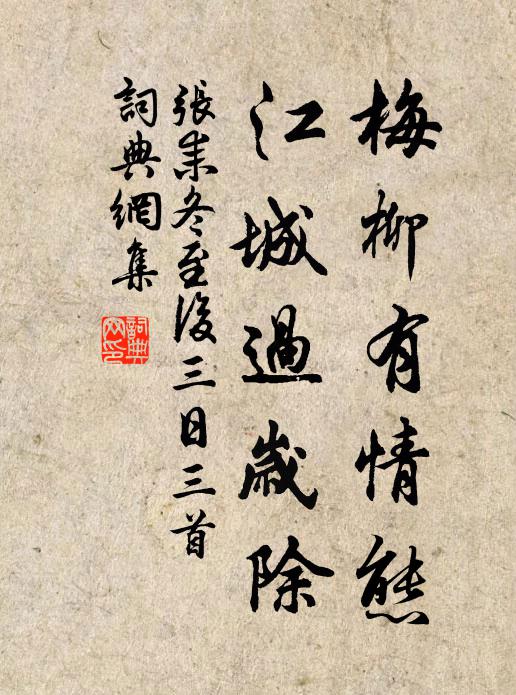 梅柳有情態
江城過歲除
張耒冬至後三日三首
詞典網集
詞典
网印